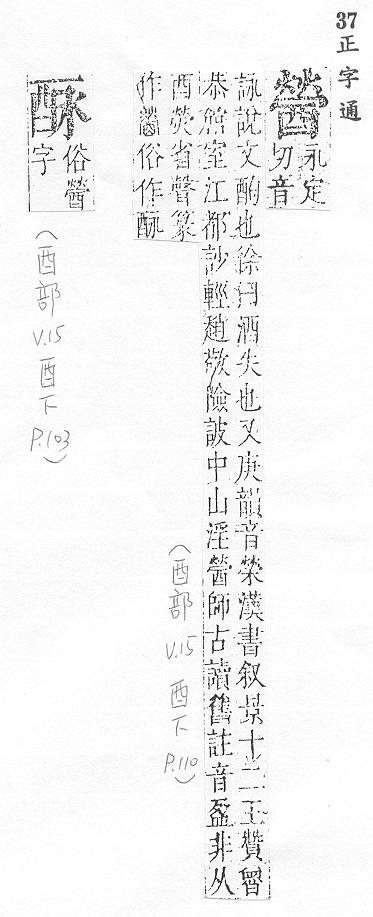 37正字通
醟
永定
切音
詠說文酌也徐曰酒失也又庚韻音榮漢書叙景十三王贊魯
恭館室江都訬輕趙敬險詖中山淫醟師古讀舊註音盈非从
酉熒省聲篆
作俗作
(酉部 V.15 酉下 P.110)
俗醟
字
(酉部 V.15 酉下 P.103)